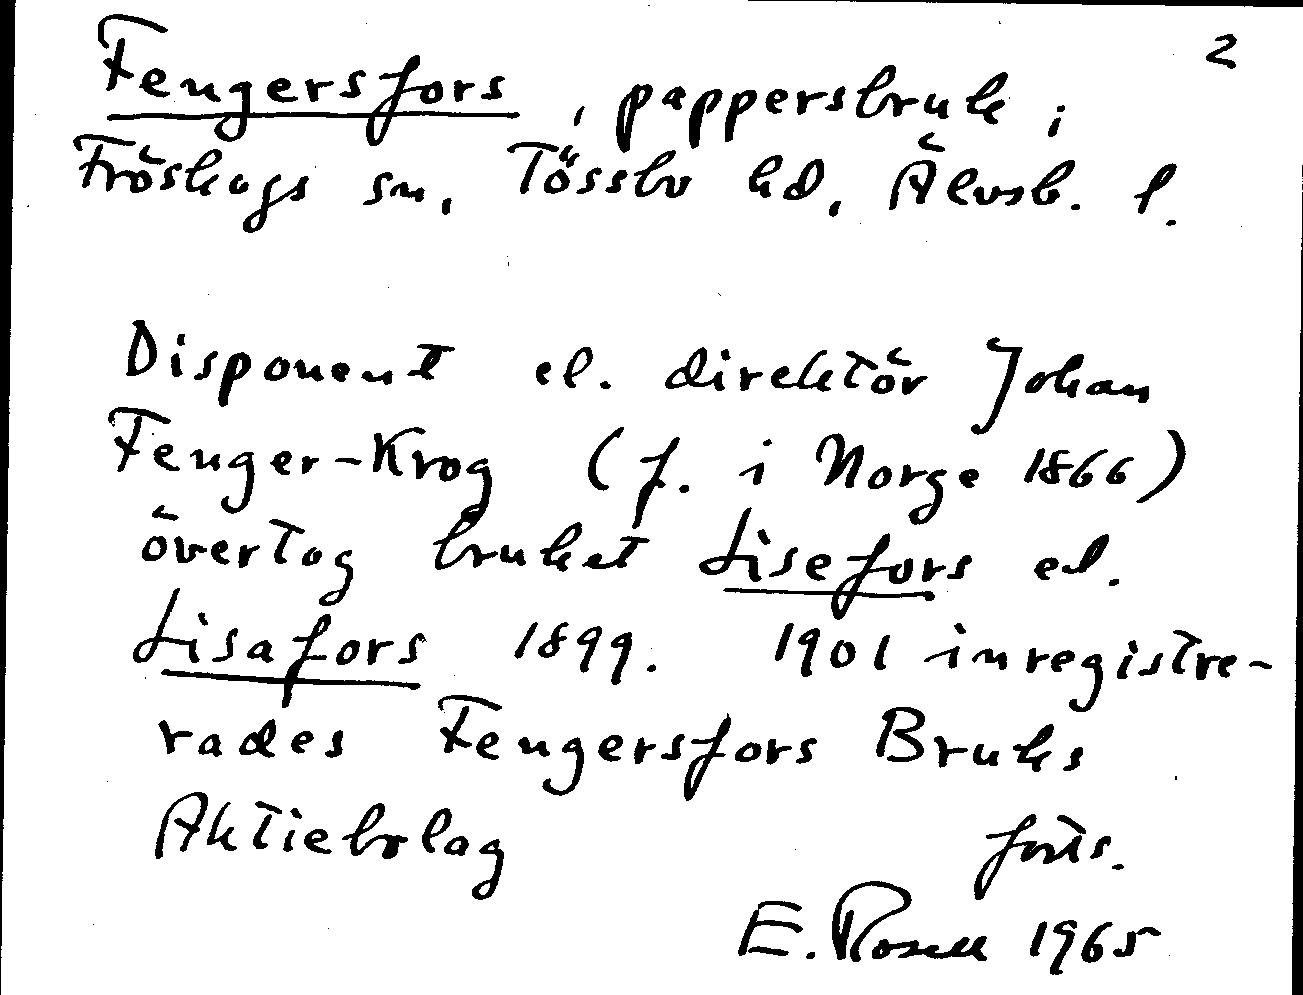 2
Fengersfors, pappersbruk i
Fröskogs sn, Tössbo hd, Älvsb. l.
Disponent el. direktör Johan
Fenger-Krog (f. i Norge 1866)
övertog bruket Lisefors el.
Lisafors 1899. 1901 inregistre-
rades Fengersfors Bruks
Aktiebolag forts.
E. Rosell 1965